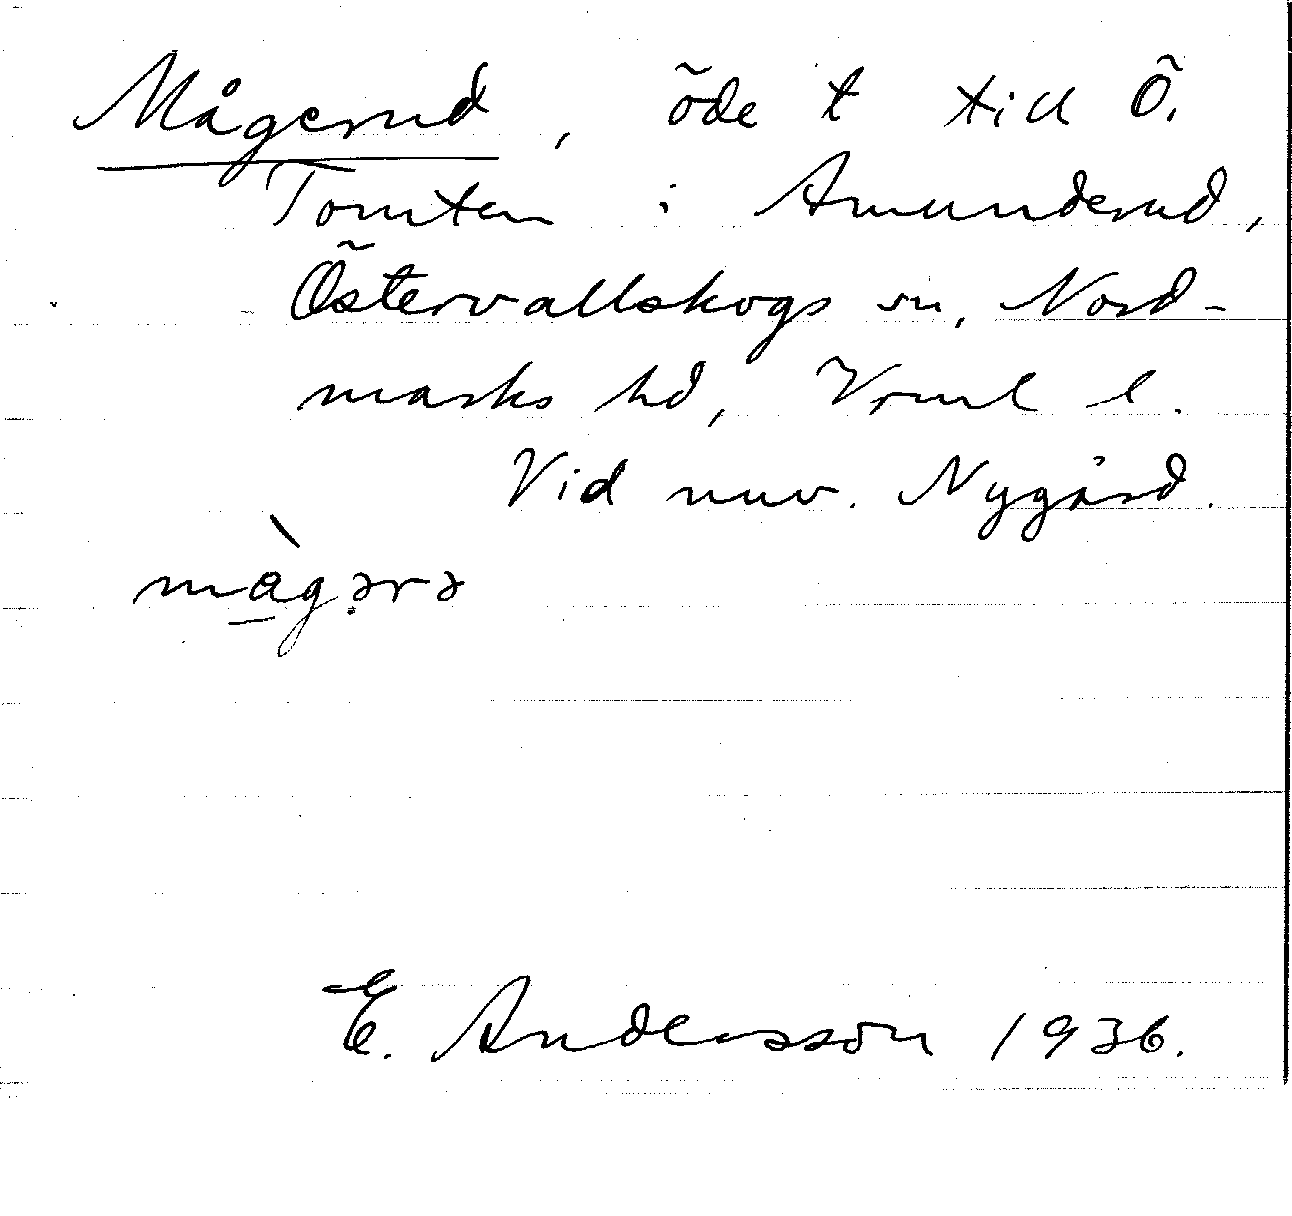 Mågerud, öde t till Ö.
Tomten i Amunderud,
Östervallskogs sn, Nord-
marks hd, Vrml l.
Vid nuv. Nygård.
màgərə
E. Andersson 1936.